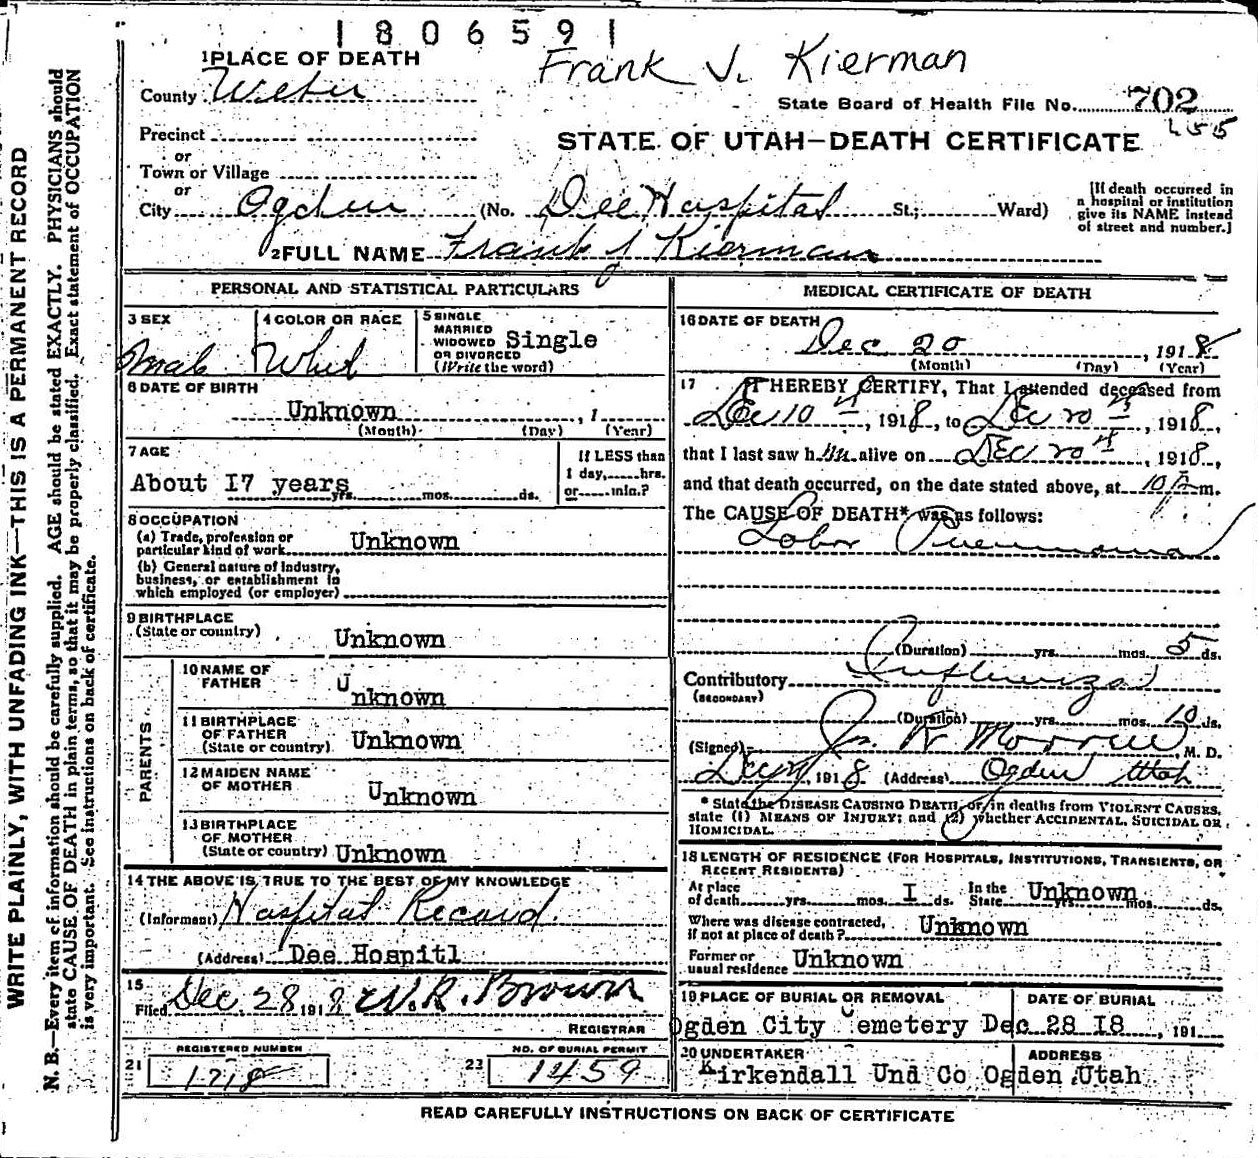 1806591
Frank J. Kierman
1 PLACE OF DEATH
County Weber
State Board of Health File No. 702
455
Precinct
or
Town or Village
or
STATE OF UTAH—DEATH CERTIFICATE
City Ogden (No. Dee Hospital St.; Ward)
[If death occurred in
a hospital or institution
give its NAME instead
of street and number.]
2 FULL NAME Frank J Kierman
WRITE PLAINLY, WITH UNFADING INK—THIS IS A PERMANENT RECORD
N. B.—Every item of information should be carefully supplied. AGE should be stated EXACTLY. PHYSICIANS should
state CAUSE OF DEATH in plain terms, so that it may be properly classified. Exact statement of OCCUPATION
is very important. See instructions on back of certificate.
PERSONAL AND STATISTICAL PARTICULARS
3 SEX
Male
4 COLOR OR RACE
White
5 SINGLE
MARRIED
WIDOWED
OR DIVORCED
(Write the word)
Single
6 DATE OF BIRTH
Unknown , 1
(Month) (Day) (Year)
7 AGE
About I7 years
yrs. mos. ds.
If LESS than
1 day, hrs.
or min.?
8 OCCUPATION
(a) Trade, profession or
particular kind of work Unknown
(b) General nature of industry,
business, or establishment in
which employed (or employer)
9 BIRTHPLACE
(State or country) Unknown
PARENTS
10 NAME OF
FATHER
Unknown
11 BIRTHPLACE
OF FATHER
(State or country) Unknown
12 MAIDEN NAME
OF MOTHER
Unknown
13 BIRTHPLACE
OF MOTHER
(State or country) Unknown
14 THE ABOVE IS TRUE TO THE BEST OF MY KNOWLEDGE
(Informant) Hospital Record.
(Address) Dee Hospitl
15
Filed Dec 28 1918 W.R. Brown
REGISTRAR
21 REGISTERED NUMBER
1718
23 NO. OF BURIAL PERMIT
1459
MEDICAL CERTIFICATE OF DEATH
16 DATE OF DEATH
Dec 20 , 1918
(Month) (Day) (Year)
17 I HEREBY CERTIFY, That I attended deceased from
Dec 10th , 1918, to Dec 20th , 1918,
that I last saw him alive on Dec 20th , 1918,
and that death occurred, on the date stated above, at 10 m.
The CAUSE OF DEATH* was as follows:
Lobar Pneumonia
(Duration) yrs. mos. 5 ds.
Contributory Influenza
(SECONDARY)
(Duration) yrs. mos. 10 ds.
(Signed) Jos. R Morrell M. D.
1918 (Address) Ogden Utah
* State the DISEASE CAUSING DEATH, or, in deaths from VIOLENT CAUSES,
state (1) MEANS OF INJURY; and (2) whether ACCIDENTAL, SUICIDAL OR
HOMICIDAL.
18 LENGTH OF RESIDENCE (FOR HOSPITALS, INSTITUTIONS, TRANSIENTS, OR
RECENT RESIDENTS)
At place
of death yrs. mos. I ds.
In the
State Unknown yrs. mos. ds.
Where was disease contracted,
if not at place of death? Unknown
Former or
usual residence Unknown
19 PLACE OF BURIAL OR REMOVAL
Ogden City Cemetery
DATE OF BURIAL
Dec 28 I8 , 191
20 UNDERTAKER
Kirkendall Und Co
ADDRESS
Ogden Utah
READ CAREFULLY INSTRUCTIONS ON BACK OF CERTIFICATE